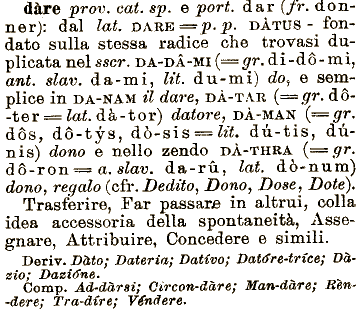 dàre prov. cat. sp. e port. dar (fr. don-
ner): dal lat. DARE = p. p. DÀTUS - fon-
dato sulla stessa radice che trovasi du-
plicata nel sscr. DA-DÂ-MI (= gr. dí-dô-mi,
ant. slav. da-mi, lit. du-mi) do, e sem-
plice in DA-NAM il dare, DÂ-TAR (= gr. dô-
-ter = lat. dà-tor) datore, DÂ-MAN (= gr.
dôs, dô-týs, dò-sis = lit. dú-tis, dú-
nis) dono e nello zendo DÂ-THRA (= gr.
dô-ron = a. slav. da-rû, lat. dò-num)
dono, regalo (cfr. Dedito, Dono, Dose, Dote).
Trasferire, Far passare in altrui, colla
idea accessoria della spontaneità, Asse-
gnare, Attribuire, Concedere e simili.
Deriv. Dàto; Dateria; Datívo; Datóre-tríce; Dà-
zio; Dazióne.
Comp. Ad-dàrsi; Circon-dàre; Man-dàre; Rèn-
-dere; Tra-díre; Véndere.